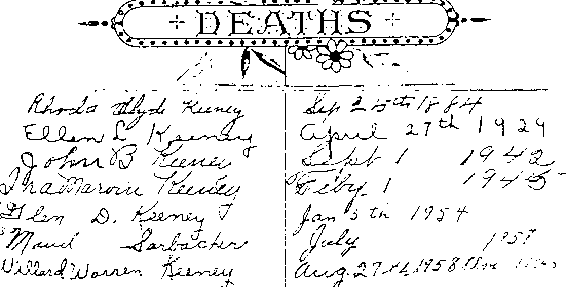 DEATHS
Rhoda Clyde Keeney Sep 25th 1884
Ellen L Keeney April 27th 1929
John B Keeney Sept 1 1942
Ira Marvin Keeney Feby 1 1945
Glen D. Keeney Jan 5th 1954
Maud Sarbacher July 1957
Willard Warren Keeney Aug 27th 1958